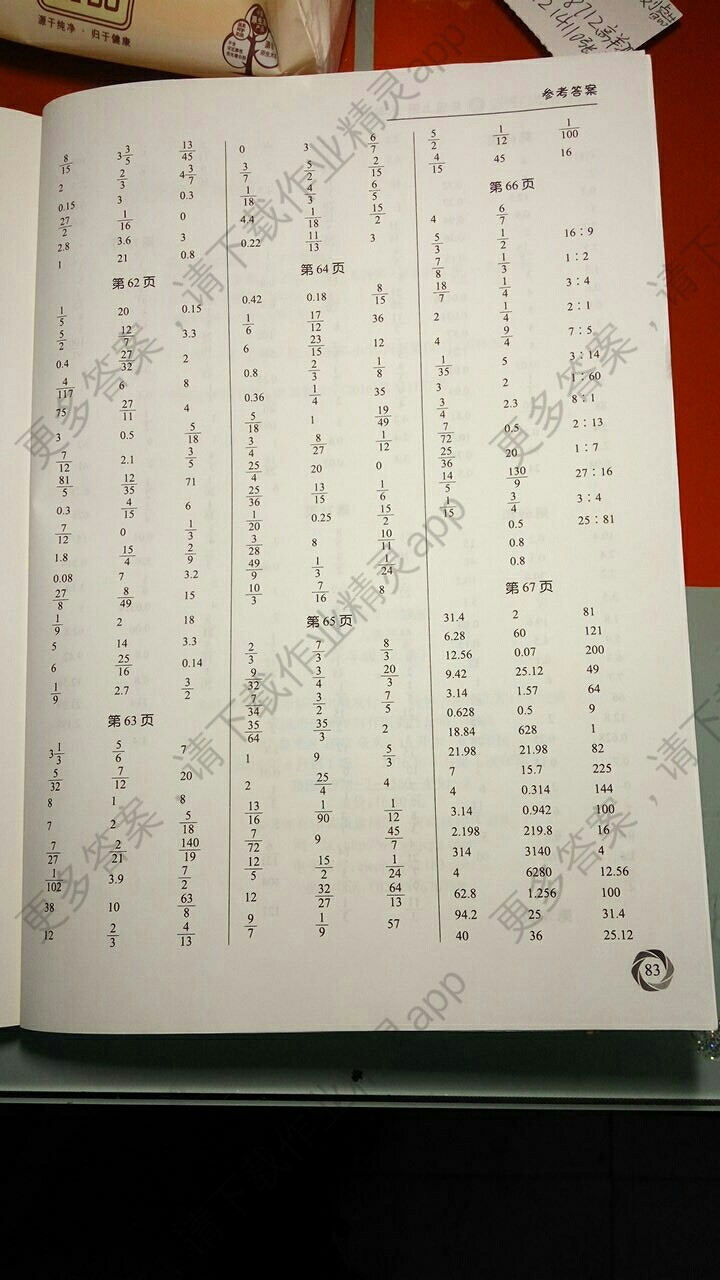 源于纯净·归于健康
参考答案
8/15 3 3/5 13/45
2 2/3 4 3/7
0.15 3 0.3
27/2 1/16 0
2.8 3.6 3
1 21 0.8
第62页
1/5 20 0.15
5/2 12/7 3.3
0.4 27/32 2
4/117 6 8
75 27/11 4
3 0.5 5/18
7/12 2.1 3/5
81/5 12/35 71
0.3 4/15 6
7/12 0 1/3
1.8 15/4 2/9
0.08 7 3.2
27/8 8/49 15
1/9 2 18
5 14 3.3
6 25/16 0.14
1/9 2.7 3/2
第63页
3 1/3 5/6 7
5/32 7/12 20
8 1 8
7 2 5/18
7/27 2/21 140/19
1/102 3.9 7/2
38 10 63/8
12 2/3 4/13
0 3 6/7
3/7 5/2 2/15
1/18 4/3 6/5
4.4 1/18 15/2
0.22 11/13 3
第64页
0.42 0.18 8/15
1/6 17/12 36
6 23/15 12
0.8 2/3 1/8
0.36 1/4 35
5/18 1 19/49
3/4 8/27 1/12
25/4 20 0
25/36 13/15 1/6
1/20 0.25 15/2
3/28 8 10/11
49/9 1/3 1/24
10/3 7/16 8
第65页
2/3 7/3 8/3
9/32 3/4 20/3
7/34 3/2 7/5
35/64 35/3 2
1 9 5/3
2 25/4 4
13/16 1/90 1/12
7/72 9 45/7
12/5 15/2 1/24
12 32/27 64/13
9/7 1/9 57
5/2 1/12 1/100
4/15 45 16
第66页
4 6/7
5/3 1/2 16∶9
7/8 1/3 1∶2
18/7 1/4 3∶4
2 1/4 2∶1
4 9/4 7∶5
1/35 5 3∶14
3 2 1∶60
3/4 2.3 8∶1
7/72 0.5 2∶13
25/36 20 1∶7
14/5 130/9 27∶16
1/15 3/4 3∶4
0.5 25∶81
0.8
0.8
第67页
31.4 2 81
6.28 60 121
12.56 0.07 200
9.42 25.12 49
3.14 1.57 64
0.628 0.5 9
18.84 628 1
21.98 21.98 82
7 15.7 225
4 0.314 144
3.14 0.942 100
2.198 219.8 16
314 3140 4
4 6280 12.56
62.8 1.256 100
94.2 25 31.4
40 36 25.12
83
更多答案，请下载作业精灵app
更多答案，请下载作业精灵app
更多答案，请下载作业精灵app
更多答案，请下载作业精灵app